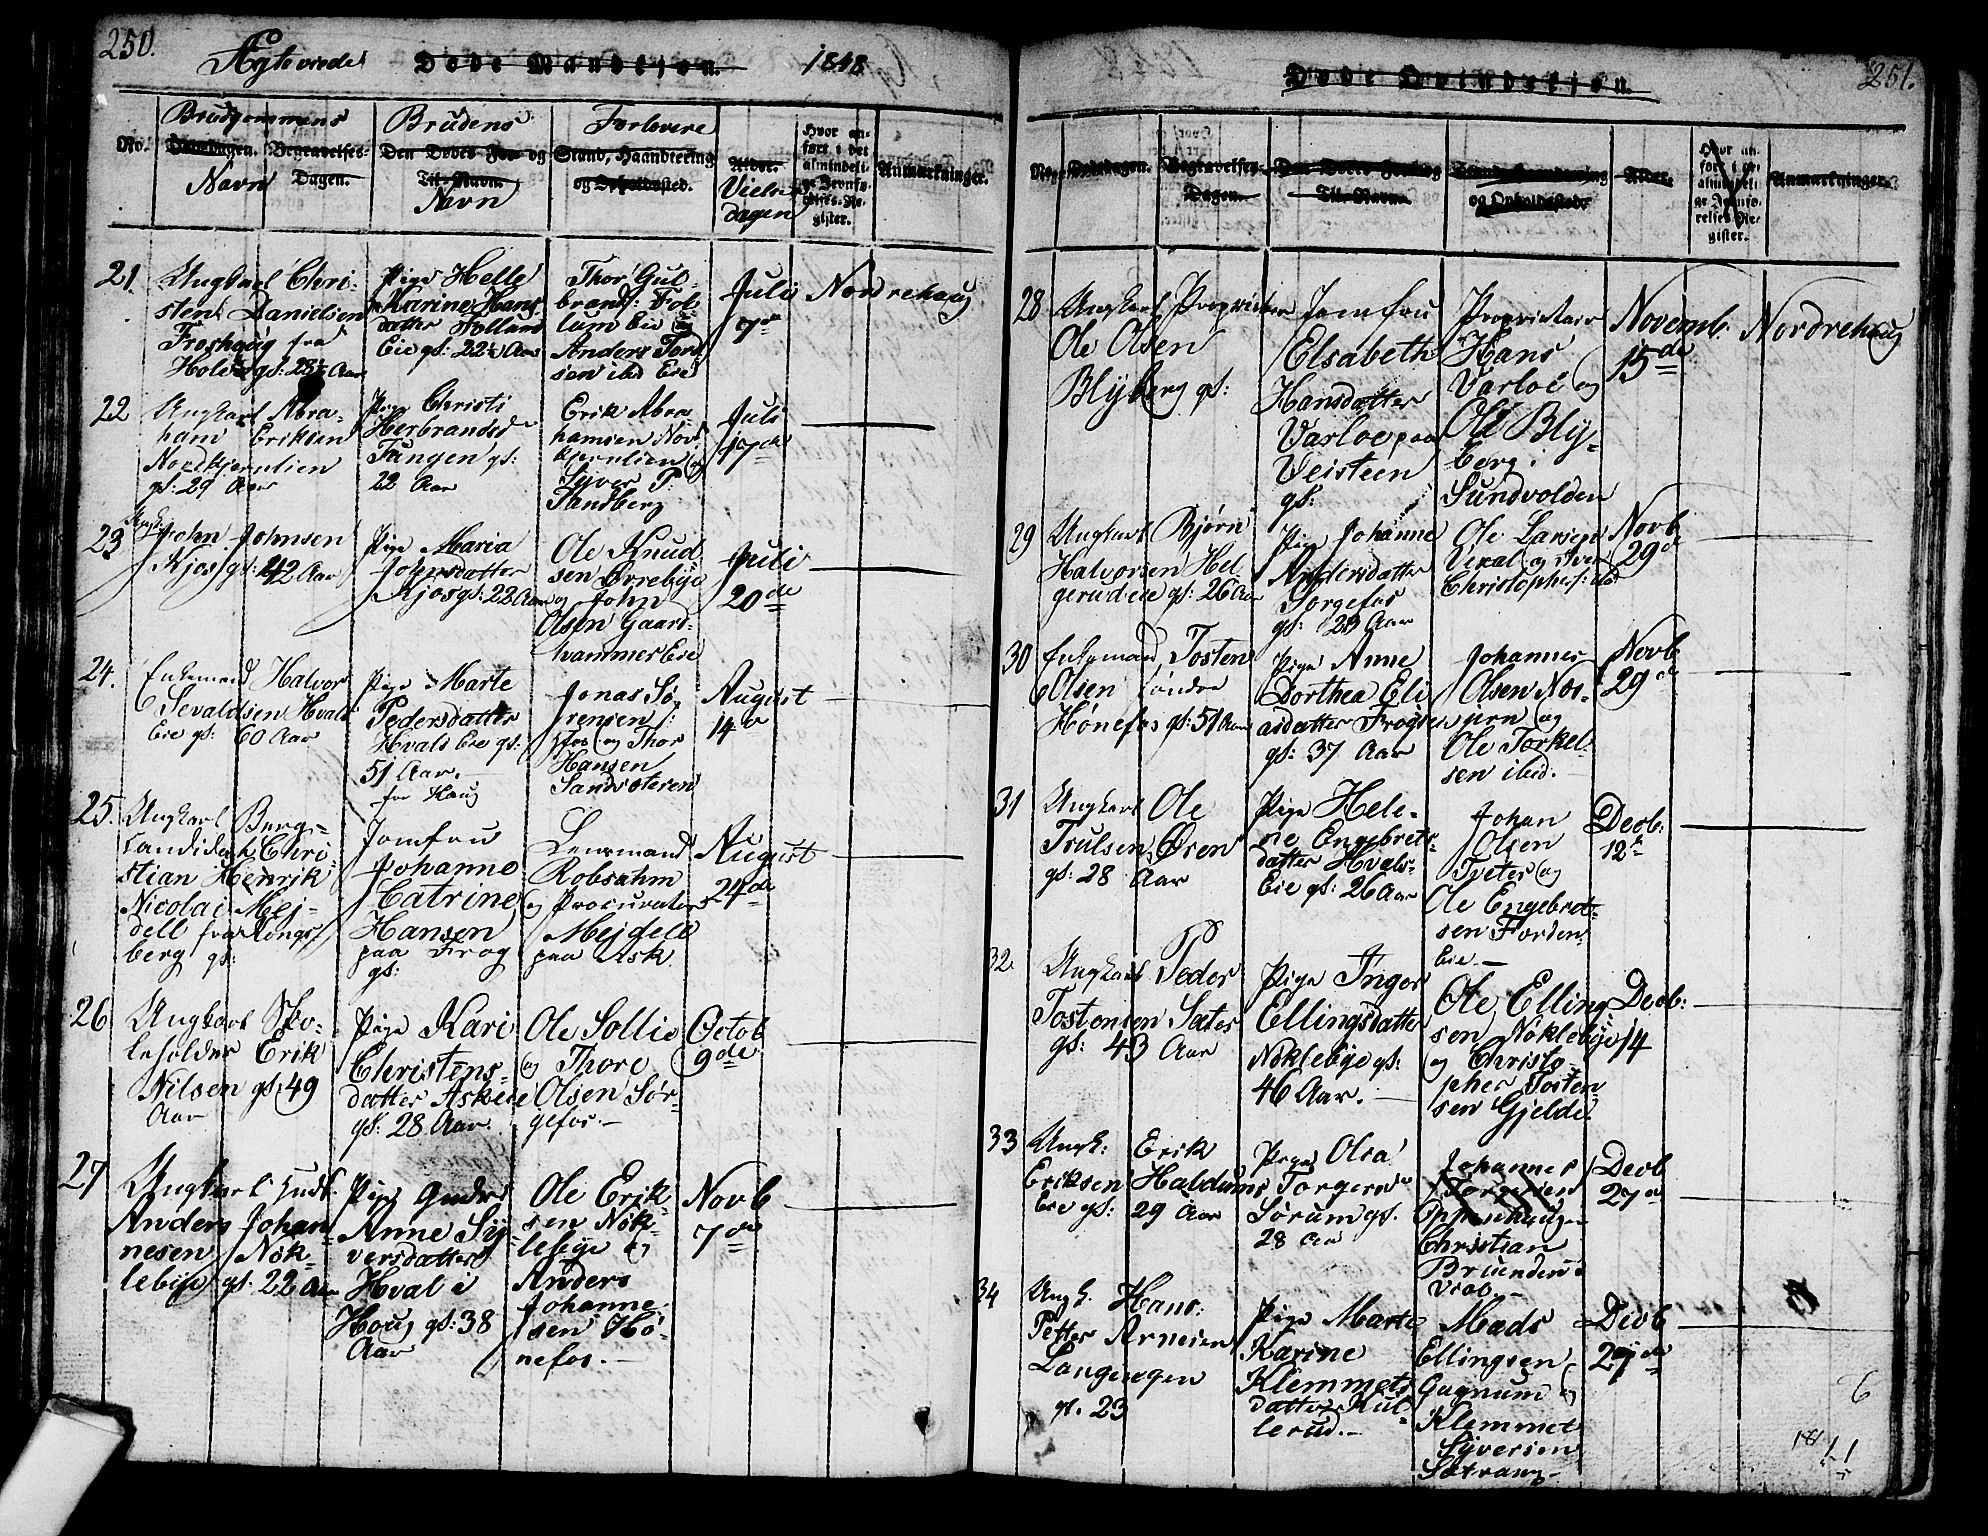 250.
Ægteviede
Døde Mandkjøn.
1848
Brudgommens
Brudens
Forlovere
No.
Dødsdagen.
Begravelses-
Dagen.
Den Dødes For- og
Til-Navn.
Stand, Haandtering
og Opholdssted.
Alder.
Hvor an-
ført i det
almindeli-
ge Jevnfø-
relses-Re-
gister.
Anmærkninger.
Navn
Navn
Vielses
dagen
21.
Ungkarl Chri-
sten Danielsen
Froshoug fra
Hole gf: 23½ Aar
Pige Helle
Karine Hans
datter Follum
Eie gf: 22½ Aar
Thor Gul-
brands: Fol
lum Eie og
Anders Tord
sen ibid Eie
Juli
7de
Nordrehoug
22
Ungkarl Abra-
ham Eriksen
Nordkjernlien
gf: 29 Aar
Pige Christi
Herbrandsd
Tangen gf:
22 Aar
Erik Abra
hamsen Nord
kjernlien og
Syver P.
Sandberg
Juli
17de
23
Ungk
John Johnsen
Kjos gf: 42 Aar
Pige Maria
Johnsdatter
Kjos gf: 22 Aar
Ole Knud
sen Ørrebye
og John
Olsen Gaard-
hammer Eie
Juli
20de
24.
Enkemand Halvor
Sevaldsen Hvals
Eie gf: 60 Aar
Pige Marte
Pedersdatter
Hvals Eie gf:
51 Aar.
fra Haug
Jonas Sø
rensen
fos og Thor
Hansen
Sandsæteren
August
14de
25.
Ungkarl Berg-
Candidat Chri-
stian Henrik
Nicolai Mej-
dell fra Kongs
berg gf:
Jomfru
Johanne
Catrine
Hansen
paa Frog
gf:
Lensmand
Robsahm
og Procurator
Mejdell
paa Ask
August
24de
26
Ungkarl Sko-
leholder Erik
Nilsen gf: 49
Aar
Pige Kari
Christens-
datter Askeie
gf: 28 Aar.
Ole Sollie
og Thore
Olsen Sør-
gefos.
Octob
9de
27
Ungkarl Gudb.
Anders Johan-
nesen Nøk-
lebye gf: 22 Aar
Pige Gudbr
Anne Sy-
versdatter
Hval i
Houg gf: 38
Aar
Ole Erik-
sen Nøk-
lebye og
Anders
Johanne-
sen Hø-
nefos.
Novb
7de
251.
Døde Qvindekjøn.
No.
Dødsdagen.
Begravelses-
Dagen.
Den Dødes For- og
Til-Navn.
Stand, Haandtering
og Opholdssted.
Alder.
Hvor an-
ført i det
almindeli-
ge Jevnfø-
relses-Re-
gister.
Anmærkninger.
28
Ungkarl Proprietær
Ole Olsen
Blyberg gf:
Jomfru
Elsabeth
Hansdatter
Varloe paa
Veisteen
gf:
Proprietair
Hans
Varloe og
Ole Bly-
berg i
Sundvolden
Novemb.
15de
Nordrehoug
29
Ungkarl Bjørn
Halvorsen Hel
gerud eie gf: 26 Aar
Pige Johanne
Andersdatter
Sorgefos
gf: 23 Aar
Ole Larsen
Vexal og Iver
Christophers: ibid
Novb
29d
30
Enkemand Tosten
Olsen søndre
Hønefos gf: 51 Aar
Pige Anne
Dorthea Eli
asdatter Frogs
gf: 37 Aar
Johannes
Olsen Nor-
gren og
Ole Torkel-
sen ibid.
Novb
29d
31
Ungkarl Ole
Trulsen Øren
gf: 28 Aar
Pige Hele-
ne Engebrets-
datter Hvals-
Eie gf: 26 Aar
Johan
Olsen
Tveter og
Ole Engebret-
sen Forden-
Eie.
Decb:
12te
32.
Ungkarl Peder
Tostensen Sæter
gf: 43 Aar
Pige Inger
Ellingsdatter
Nøklebye gf:
46 Aar.
Ole Elling
sen Nøklebye
og Christo-
pher Tosten-
sen Gjelde
Decb:
14
33
Ungk: Erik
Eriksen Haldums
Eie gf: 29 Aar
Pige Olea
Torgersd
Sørum gf.
28 Aar
Johannes
Torgersen
Oppenhaugen
Christian
Brundens
Viel
Decb
27d
34
Ungk. Hans
Petter Arnesen
Langengen
gf. 23
Pige Marte
Karine
Klemmets
datter Kul-
lerud.
Mads
Ellingsen
Gagnum og
Klemmet
Syversen
Sætrang
Decb
27de
6